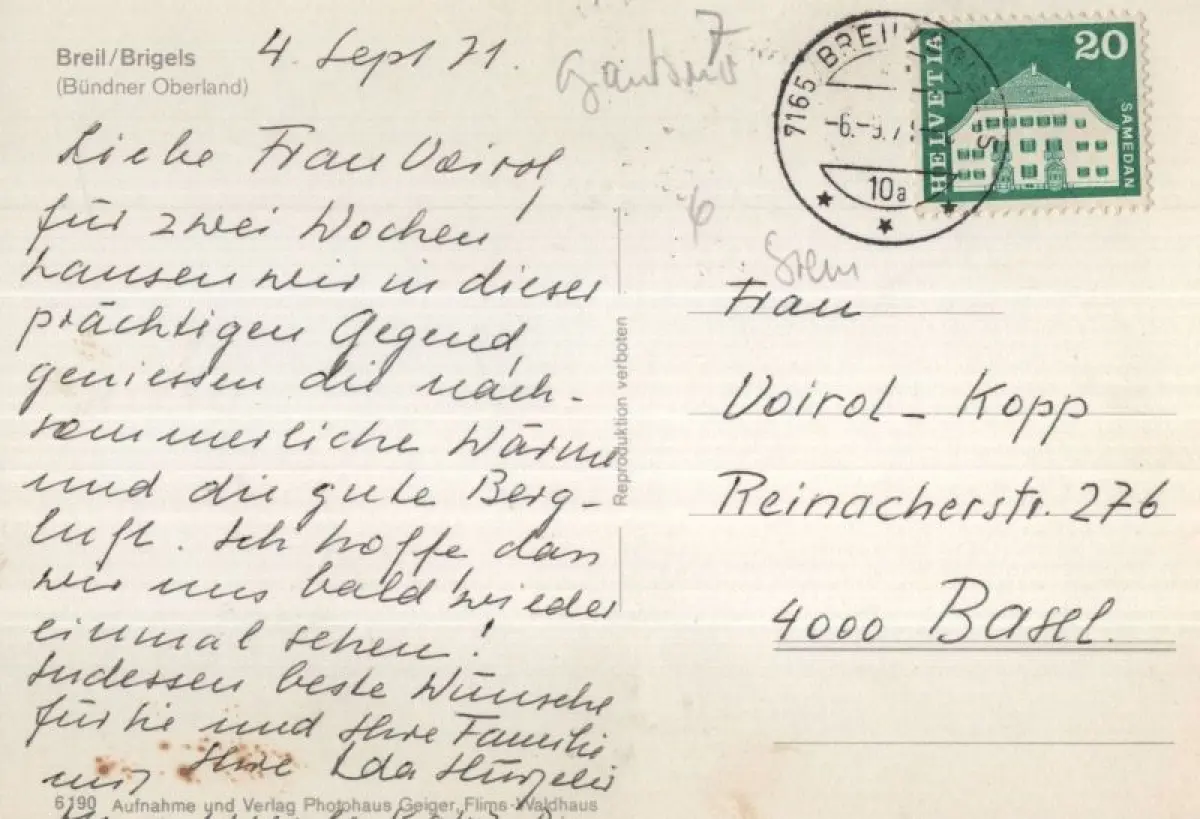 Breil/Brigels
(Bündner Oberland)
4. Sept 71.
Liebe Frau Voirol,
für zwei Wochen
hausen wir in dieser
prächtigen Gegend,
geniessen die nach-
sommerliche Wärme
und die gute Berg-
luft. Ich hoffe, dass
wir uns bald wieder
einmal sehen!
Indessen beste Wünsche
für Sie und Ihre Familie
Ihre Ida
6190 Aufnahme und Verlag Photohaus Geiger, Flims-Waldhaus
Reproduktion verboten
7165 BREIL
10a
HELVETIA
20
SAMEDAN
7
6
Frau
Voirol-Kopp
Reinacherstr. 276
4000 Basel.